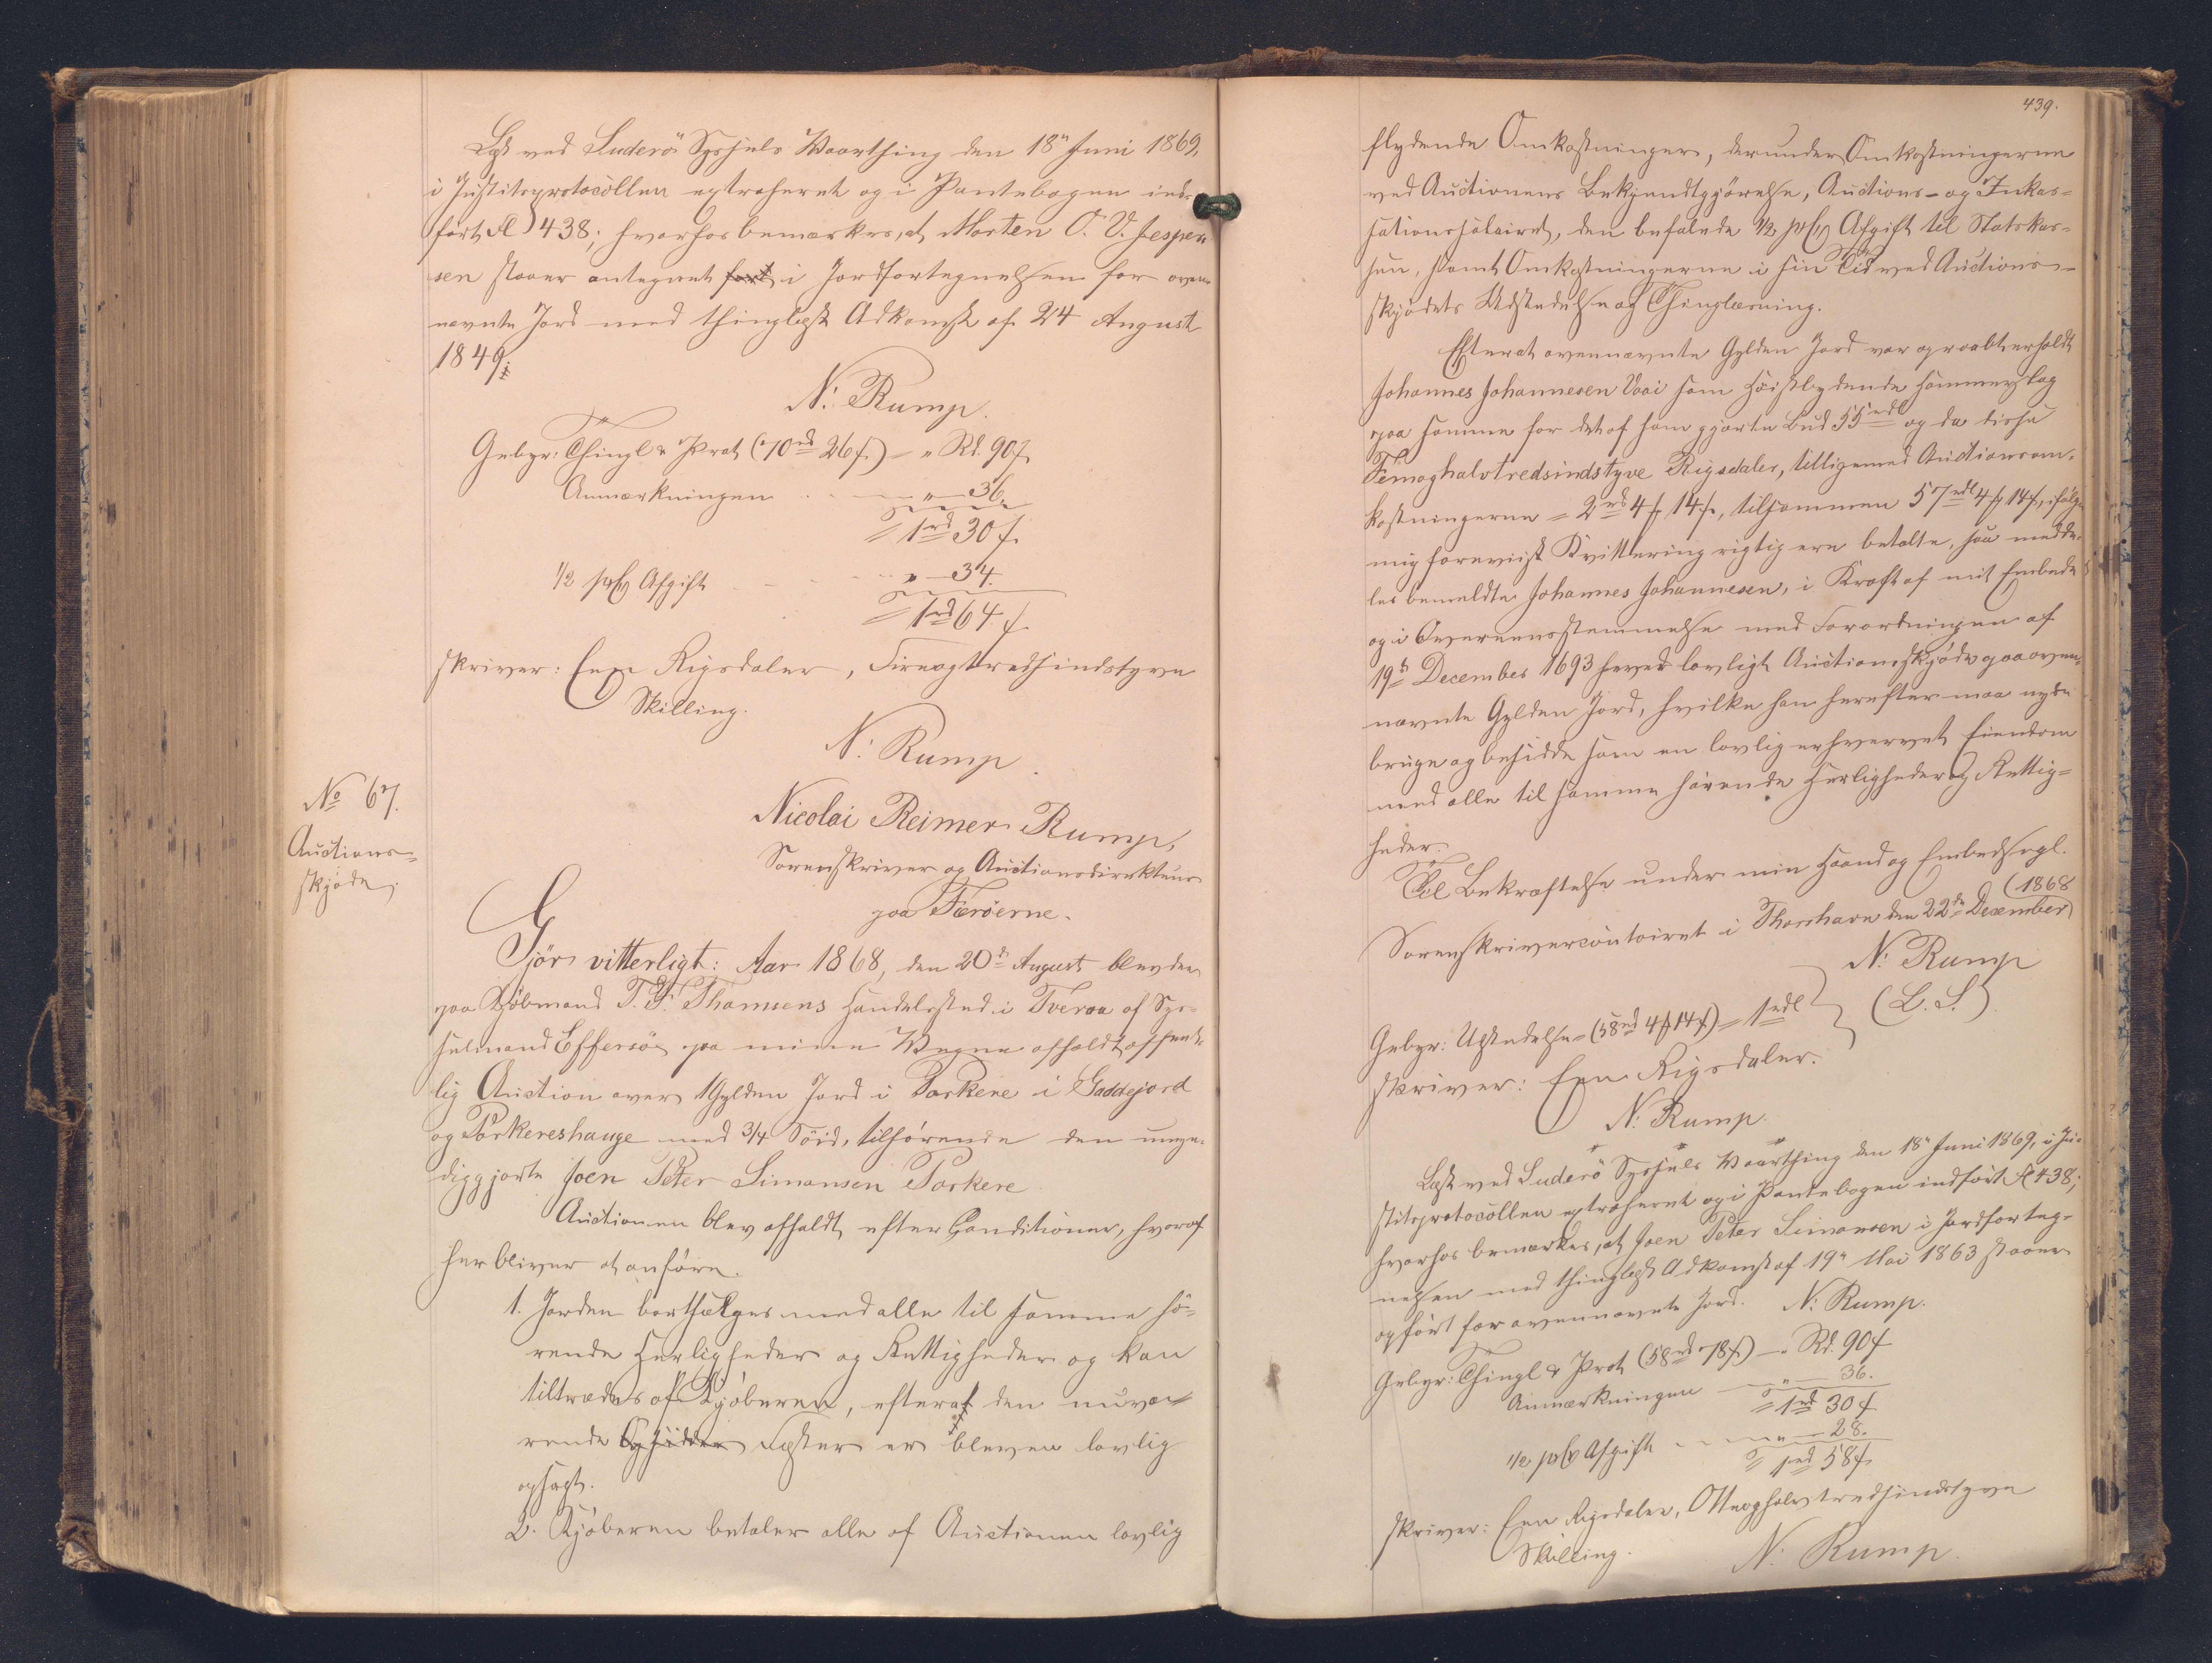 Læst ved Suderö Sysjels Vaarthing den 18n Juni 1869,
i Justitsprotocollen extraheret og i Pantebogen ind-
fört fol 438; hvorhos bemærkes, at Morten O. V. Jesper-
sen staaer antegnet i Jordfortegnelsen for oven-
nævnte Jord med thinglæst Adkomst af 24 August
1849.
N. Rump.
Gebyr: Thingl & Prot (70rd 26s) = " Rd. 90s
Anmærkningen " 36.
= 1rd 30s.
1/2 pCt Afgift " 34.
= 1rd 64s
skriver: Een Rigsdaler, Fireogtredsindstyve
Skilling.
N. Rump.
No 67.
Auctions-
skjöde.
Nicolai Reimer Rump,
Sorenskriver og Auctionsdirekteur
paa Færöerne.
Gjör vitterligt: Aar 1868, den 20de August blev der
paa Kjöbmand T. F. Thomsens Handelssted i Tveraa af Sys-
selmand Effersöe paa mine Vegne afholdt offent-
lig Auction over 1 Gylden Jord i Porkere i Gaddejord
og Porkereshauge med 3/4 Söid, tilhörende den umyn-
diggjorte Joen Peter Simonsen Porkere.
Auctionen blev afholdt efter Conditioner, hvoraf
her bliver at anföre.
1. Jorden bortsælges med alle til samme hö-
rende Herligheder og Rettigheder og kan
tiltrædes af Kjöberen, efterat den nuvæ-
rende Fæster er bleven lovlig
opsagt.
2. Kjöberen betaler alle af Auctionen lovlig
439.
flydende Omkostninger, derunder Omkostningerne
ved Auctionens Bekjendtgjörelse, Auctions- og Inkas-
sationssalairet, den befalede 1/2 pCt Afgift til Statskas-
sen, samt Omkostningerne i sin Tid ved Auctions-
skjödets Udstedelse og Thinglæsning.
Efterat ovennævnte Gylden Jord var opraabt erholdt
Johannes Johannesen Vaai som höistbydende Hammerslag
paa samme for det af ham gjorte Bud 55rdl og da disse
Femoghalvtredsindstyve Rigsdaler, tilligemed Auctionsom-
kostningerne = 2rd 4 14s, tilsammen 57rdl 4 14s, ifölge
mig foreviist Kvittering rigtig ere betalte, saa medde-
les bemeldte Johannes Johannesen, i Kraft af mit Embede
og i Overeensstemmelse med Forordningen af
19de December 1693 herved lovligt Auctionsskjöde paa oven-
nævnte Gylden Jord, hvilke han herefter maa nyde
bruge og besidde som en lovlig erhvervet Eiendom
med alle til samme hörende Herligheder og Rettig-
heder.
Til Bekræftelse under min Haand og Embedssegl.
Sorenskrivercontoiret i Thorshavn den 22de December
(1868
N. Rump
(L. S.)
Gebyr: Udstedelse (58rd 4 14s) = 1rdl
skriver: Een Rigsdaler.
N. Rump.
Læst ved Suderö Sysjels Vaarthing den 18n Juni 1869, i Ju-
stitsprotocollen extraheret og i Pantebogen indfört fol 438;
hvorhos bemærkes, at Joen Peter Simonsen i Jordforteg-
nelsen med thinglæst Adkomst af 19n Mai 1863 staaer
opfört for ovennævnte Jord. N. Rump.
Gebyr: Thingl & Prot (58rd 78s) " Rd. 90s
Anmærkningen " 36.
= 1rd 30s
1/2 pCt Afgift " 28.
= 1rd 58s
skriver: Een Rigsdaler, Otteoghalvtredsindstyve
Skilling. N. Rump.